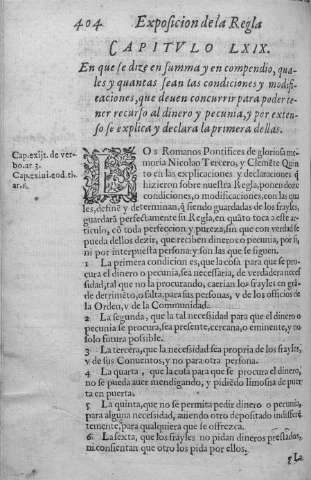 404 Exposicion de la Regla
CAPITVLO LXIX.
En que se dize en summa y en compendio, qua-
les y quantas sean las condiciones y modifi-
caciones, que deuen concurrir para poder te-
ner recurso al dinero y pecunia, y por exten-
so se explica y declara la primera dellas.
Cap. exijt. de ver-
bo. ar. 3.
Cap. exiui. eod. ti.
ar. 6.
LOS Romanos Pontifices de gloriosa me
moria Nicolao Tercero, y Clemēte Quin
to en las explicaciones y declaraciones q̃
hizieron sobre nuestra Regla, ponen doze
condiciones, o modificaciones, con la qua
les, define y determinan, q̃ siendo guardadas de los frayles,
guardarā perfectamente su Regla, en quāto toca a este ar-
ticulo, cō toda perfeccion y pureza, sin que con verdad se
pueda dellos dezir, que reciben dineros o pecunia, por si,
ni por interpuesta persona: y son las que se siguen.
1 La primera condicion es, que la cosa para que se pro-
cura el dinero o pecunia, sea necessaria, de verdadera neces
sidad, tal que no la procurando, caerian los frayles en grā-
de detrimēto, o falta, para sus personas, y de los officios de
la Orden, y de la Comunidad.
2 La segunda, que la tal necessidad para que el dinero o
pecunia se procura, sea presente, cercana, o eminente, y no
solo futura possible.
3 La tercera, que la necessidad sea propria de los frayles,
y de sus Conuentos, y no para otra persona.
4 La quarta, que la cosa para que se procura el dinero,
no se pueda auer mendigando, y pidiēdo limosna de puer
ta en puerta.
5 La quinta, que no se permita pedir dinero o pecunia,
para alguna necessidad, auiendo otro depositado indifferē
temente, para qualquiera que se offrezca.
6 La sexta, que los frayles no pidan dineros prestados,
ni consientan que otro los pida por ellos,